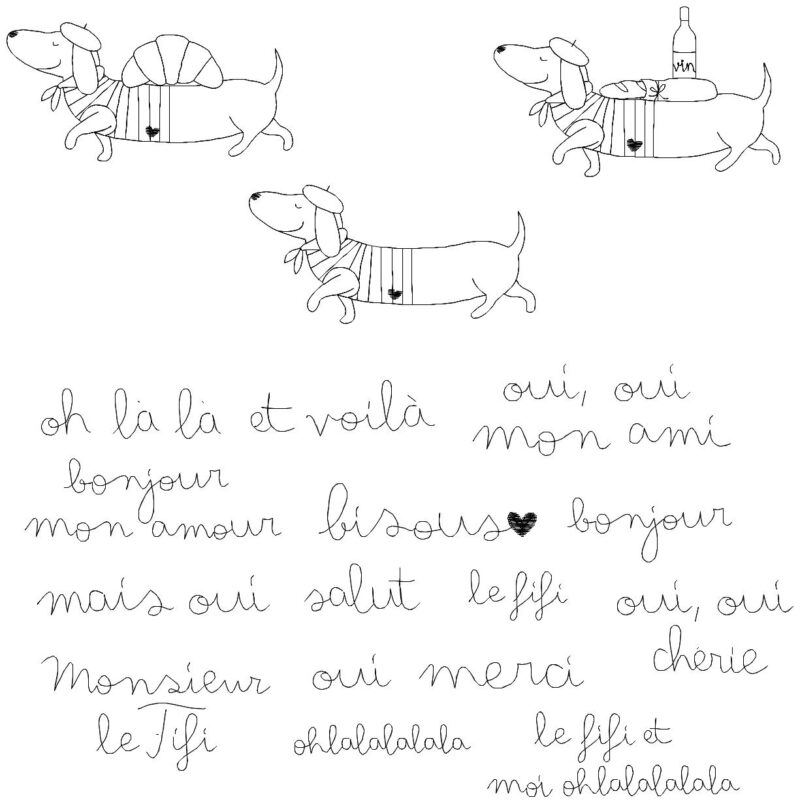 vin
oh là là et voilà
oui, oui
mon ami
bonjour
mon amour
bisous
bonjour
mais oui
salut
le fifi
oui, oui
chérie
Monsieur
le Fifi
oui merci
ohlalalalala
le fifi et
moi ohlalalalala